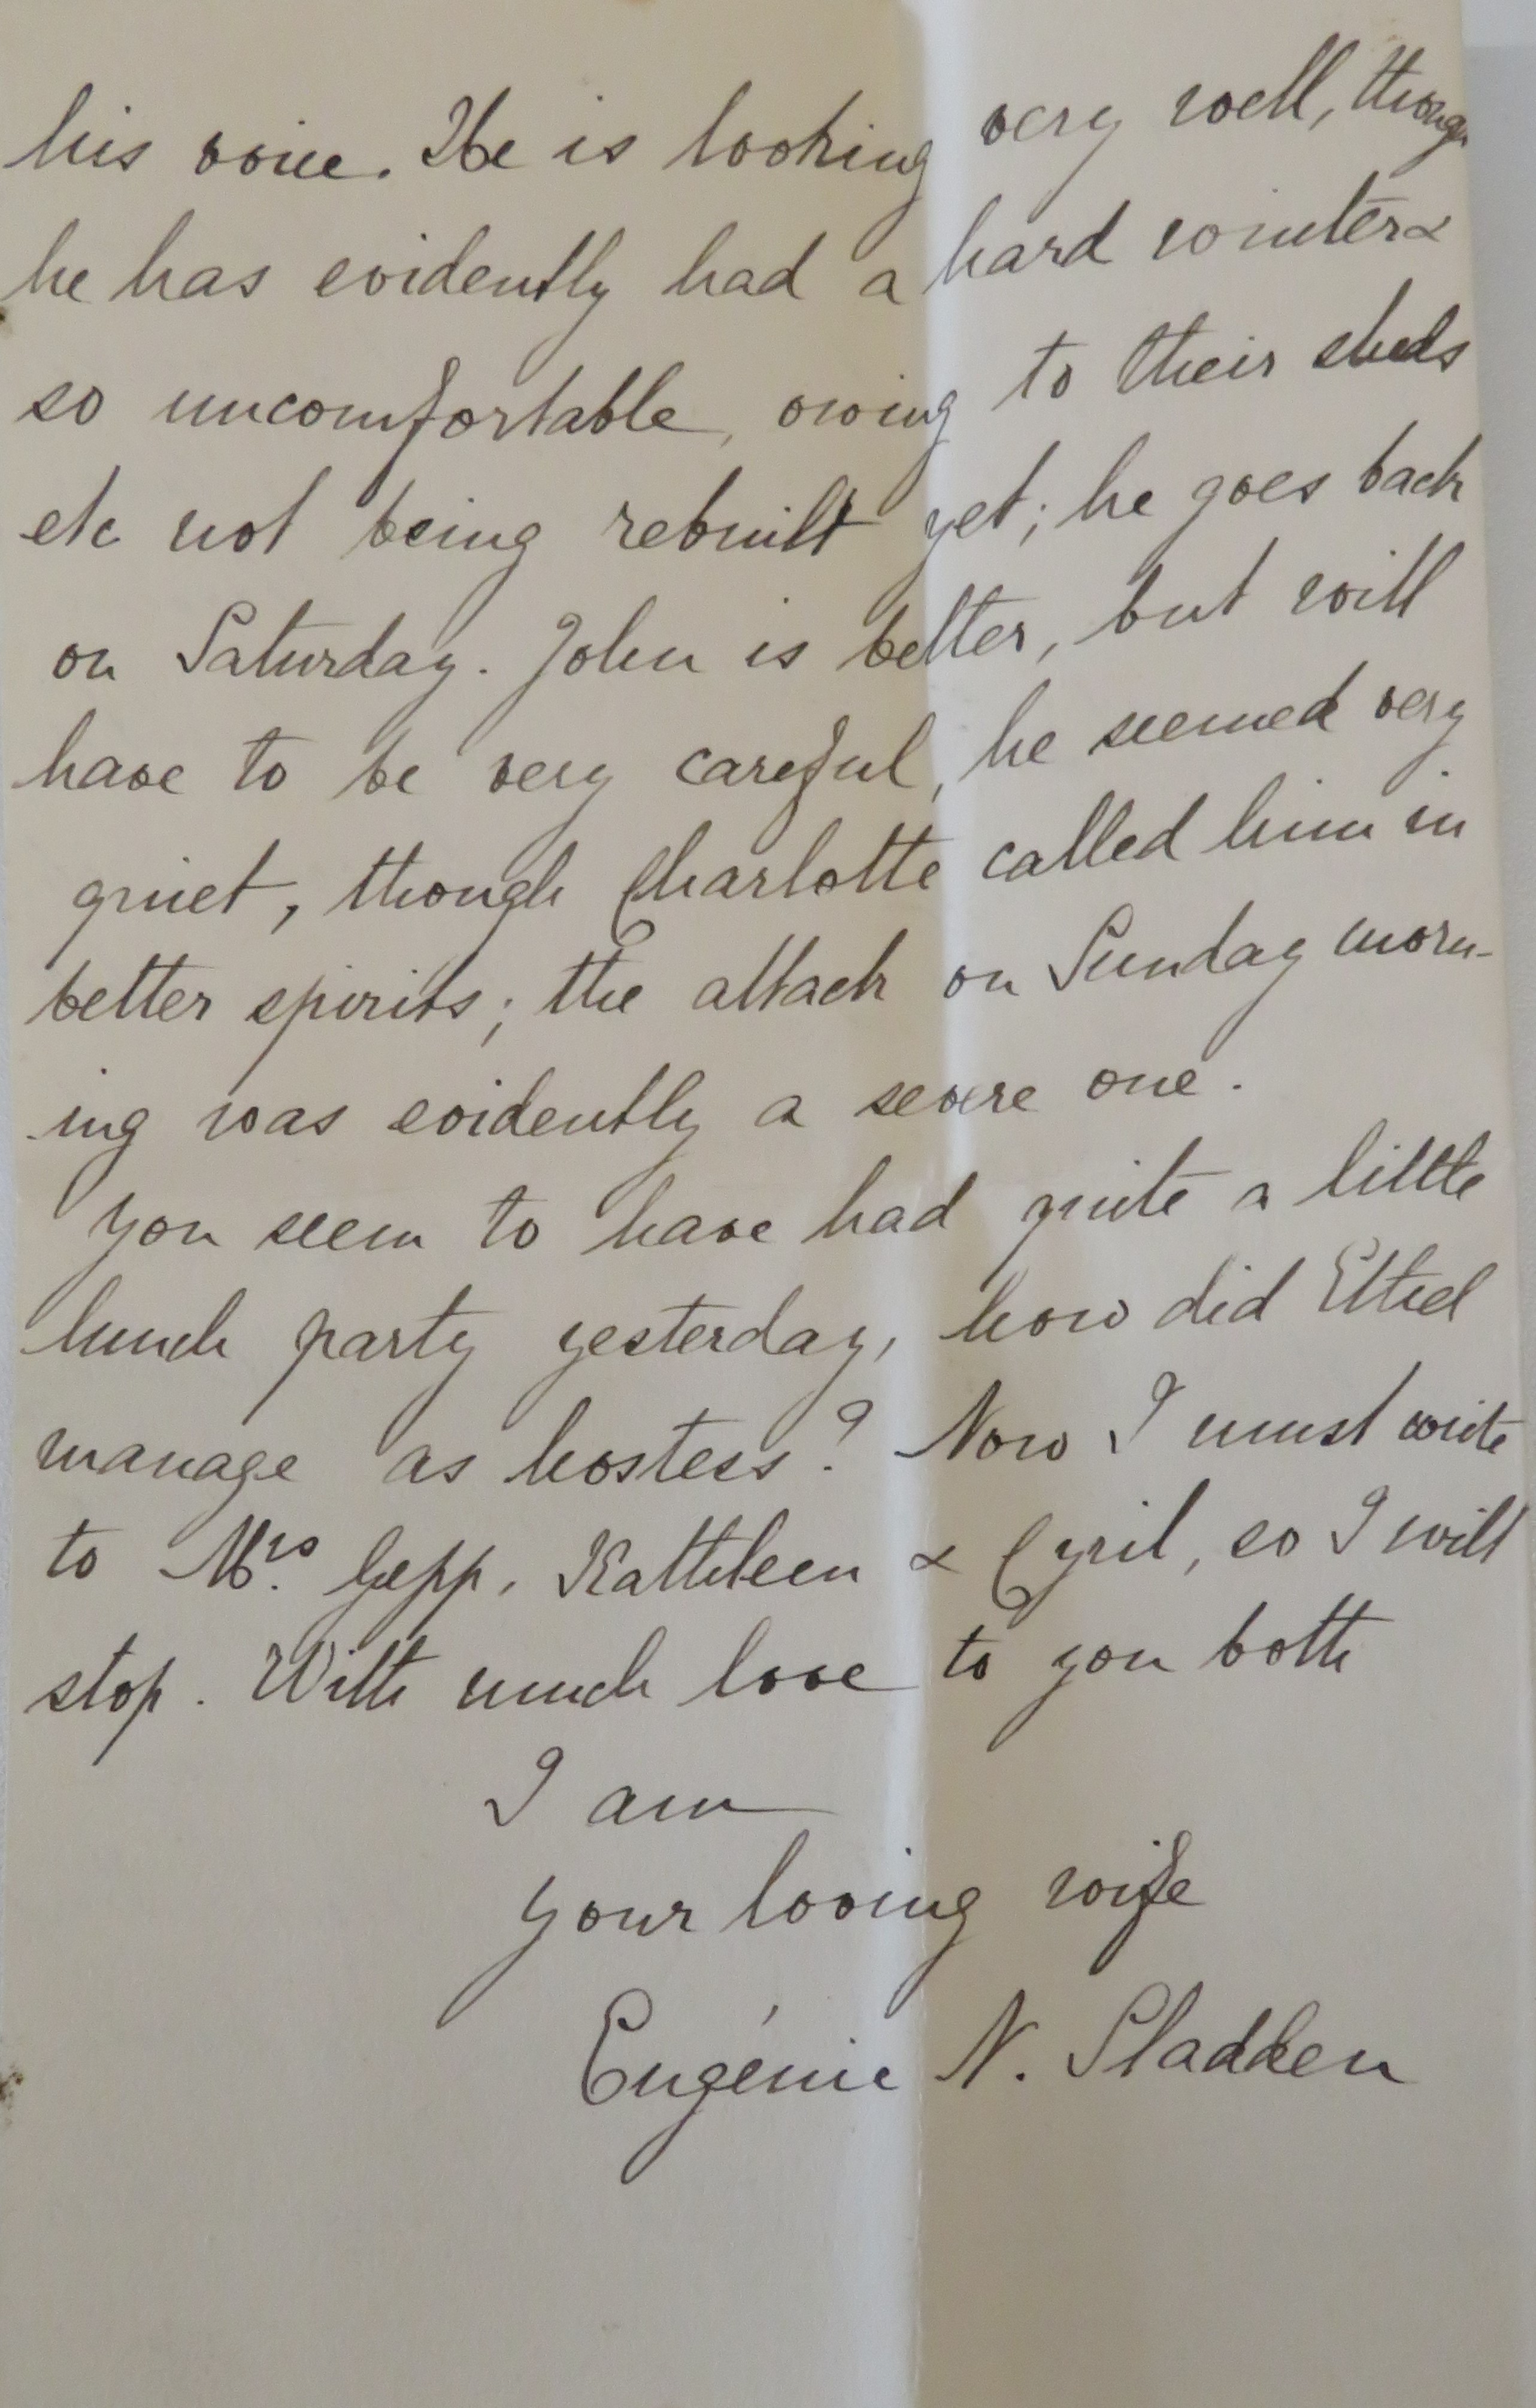 his voice. He is looking very well, though
he has evidently had a hard winter &
so uncomfortable, owing to their sheds
etc not being rebuilt yet; he goes back
on Saturday. John is better, but will
have to be very careful, he seemed very
quiet, though Charlotte called him in
better spirits; the attack on Sunday morn-
ing was evidently a severe one.
You seem to have had quite a little
lunch party yesterday, how did Ethel
manage as hostess? Now I must write
to Mrs. Gepp, Kathleen & Cyril, so I will
stop. With much love to you both
I am
your loving wife
Eugénie N. Sladden